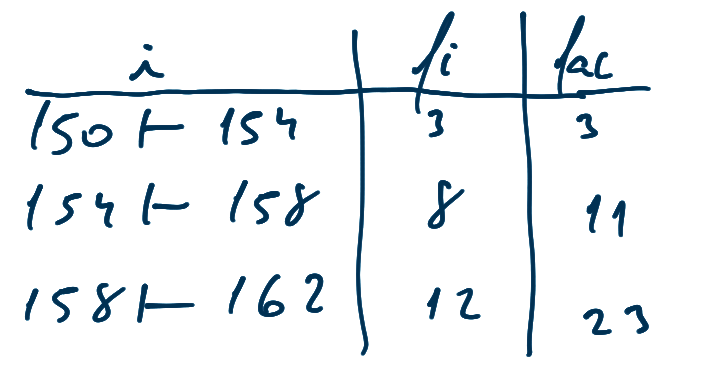 i fi fac
150 ⊢ 154 3 3
154 ⊢ 158 8 11
158 ⊢ 162 12 23